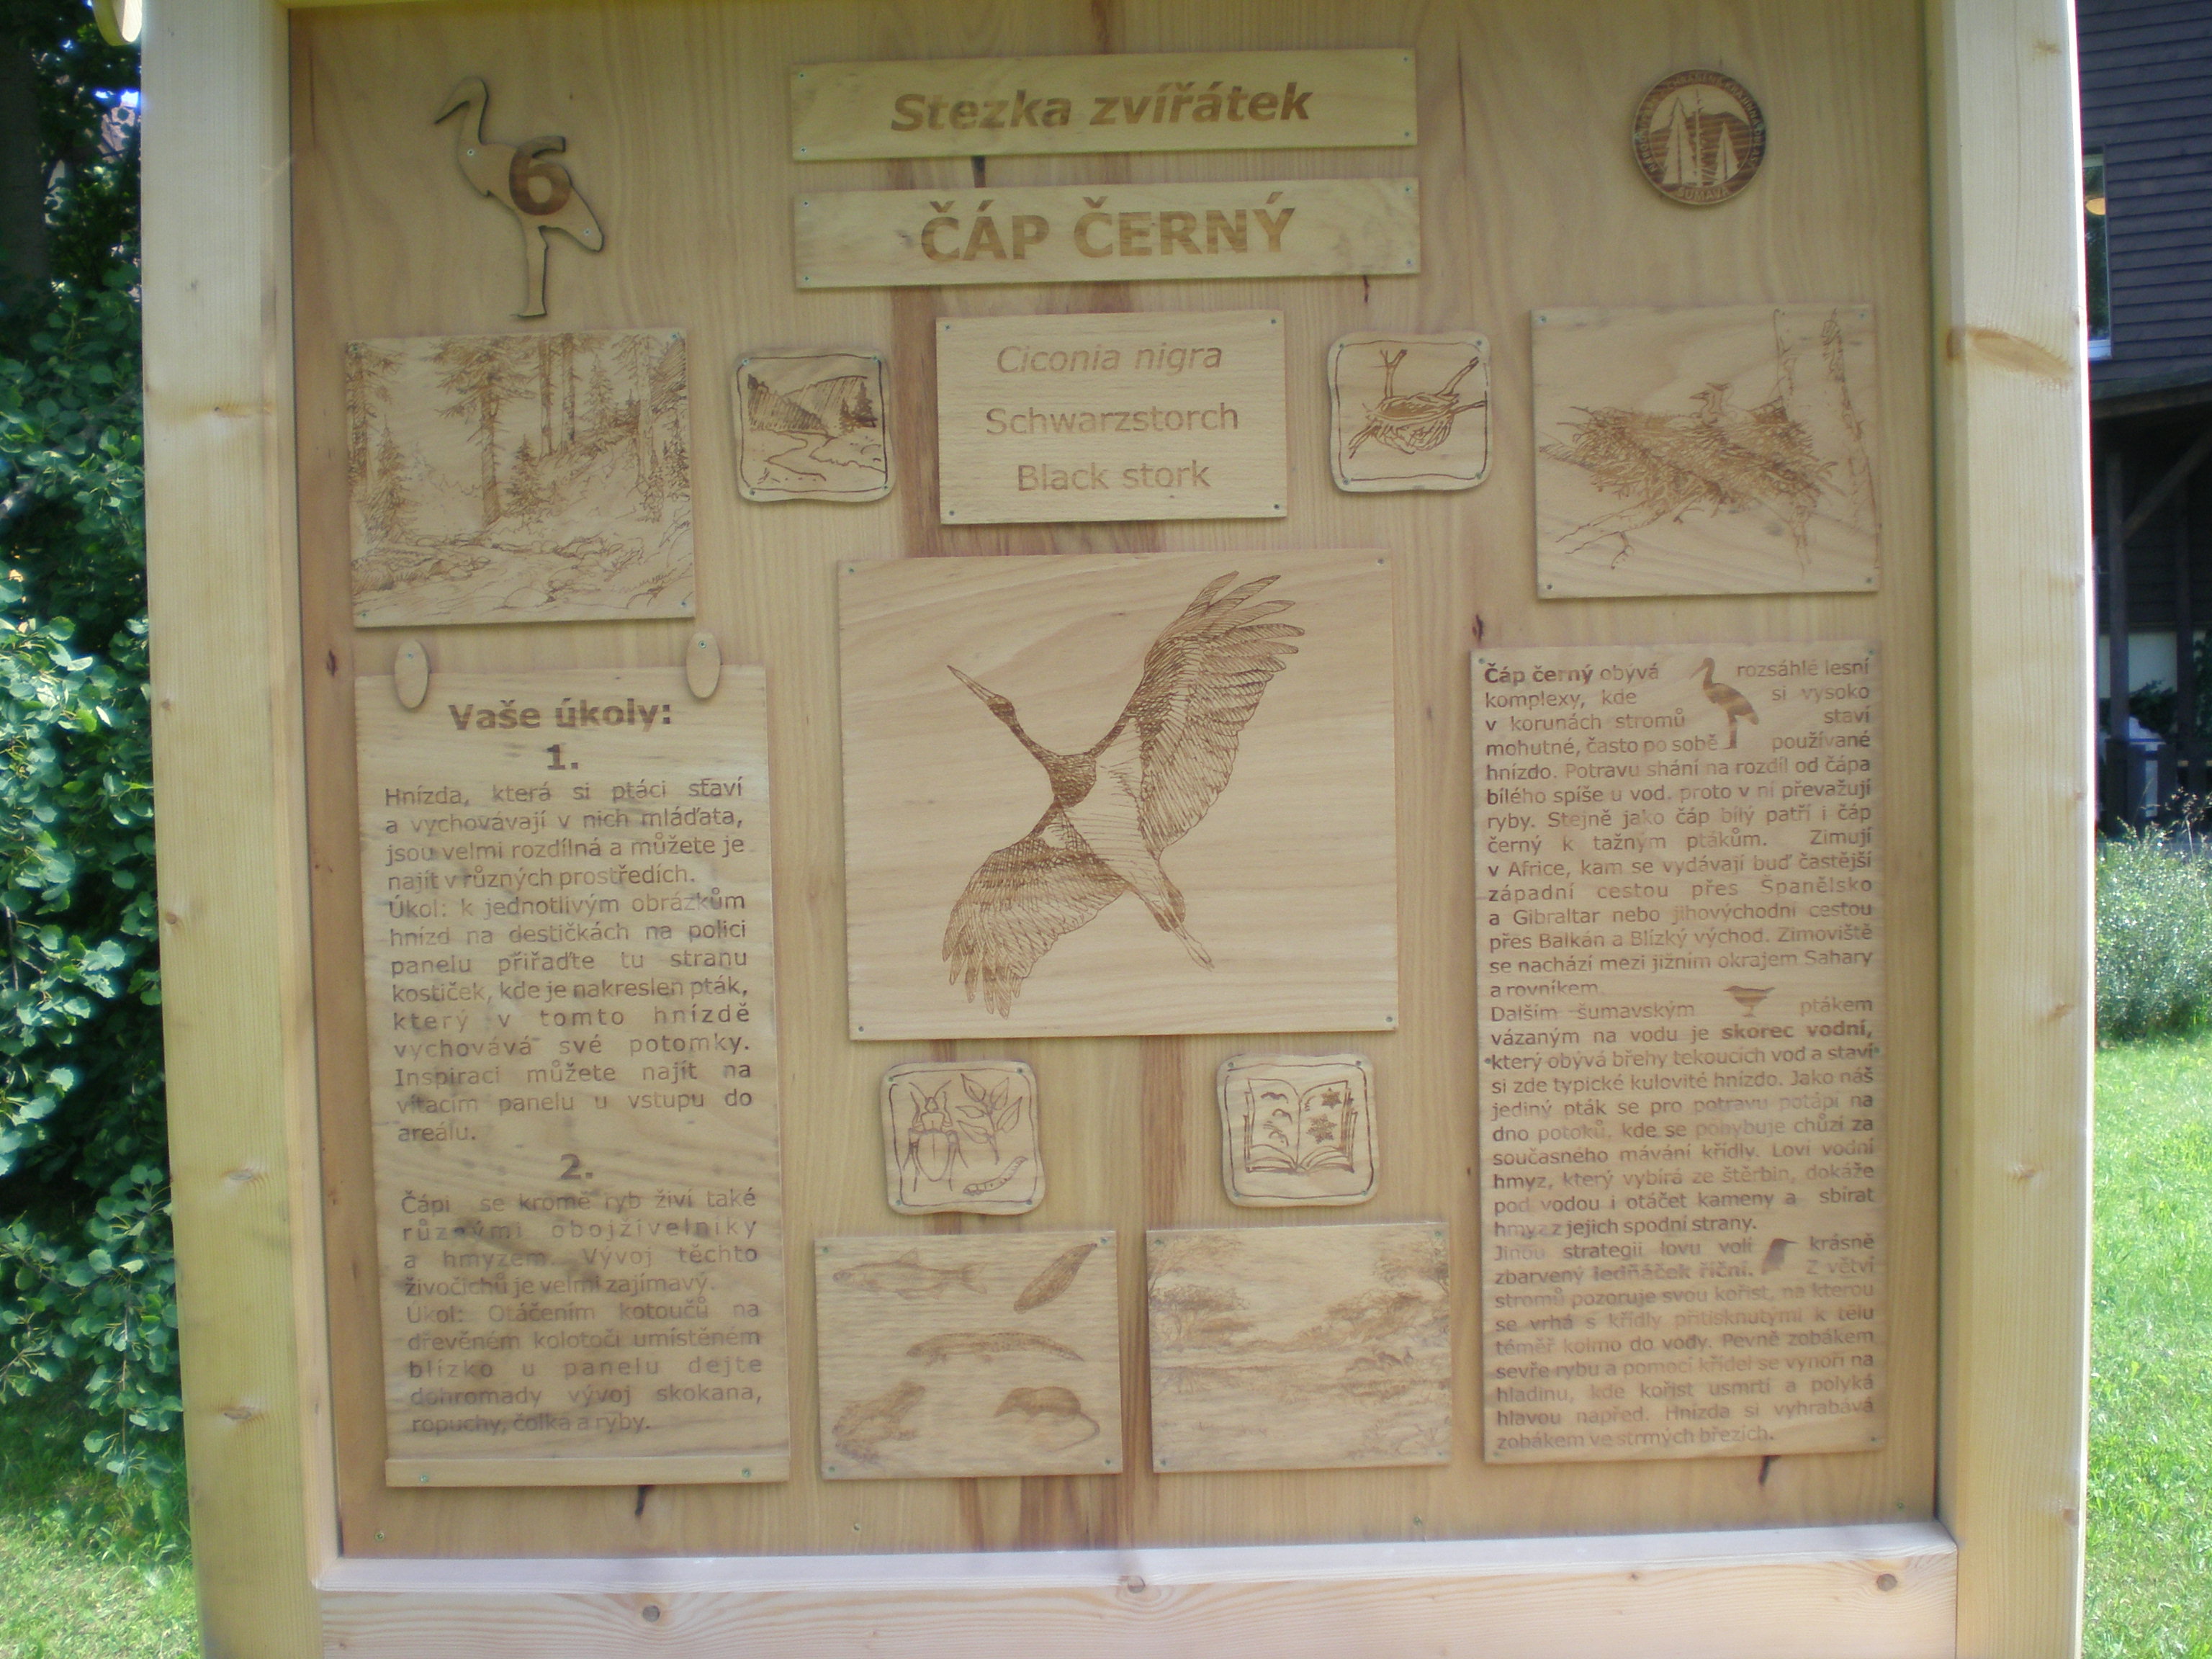 6
Stezka zvířátek
ČÁP ČERNÝ
ŠUMAVA
Ciconia nigra
Schwarzstorch
Black stork
Vaše úkoly:
1.
Hnízda, která si ptáci staví
a vychovávají v nich mláďata,
jsou velmi rozdílná a můžete je
najít v různých prostředích.
Úkol: k jednotlivým obrázkům
hnízd na destičkách na polici
panelu přiřaďte tu stranu
kostiček, kde je nakreslen pták,
který v tomto hnízdě
vychovává své potomky.
Inspiraci můžete najít na
vítacím panelu u vstupu do
areálu.
2.
Čápi se kromě ryb živí také
různými obojživelníky
a hmyzem. Vývoj těchto
živočichů je velmi zajímavý.
Úkol: Otáčením kotoučů na
dřevěném kolotoči umístěném
blízko u panelu dejte
dohromady vývoj skokana,
ropuchy, čolka a ryby.
Čáp černý obývá rozsáhlé lesní
komplexy, kde si vysoko
v korunách stromů staví
mohutné, často po sobě používané
hnízdo. Potravu shání na rozdíl od čápa
bílého spíše u vod, proto v ní převažují
ryby. Stejně jako čáp bílý patří i čáp
černý k tažným ptákům. Zimují
v Africe, kam se vydávají buď častější
západní cestou přes Španělsko
a Gibraltar nebo jihovýchodní cestou
přes Balkán a Blízký východ. Zimoviště
se nachází mezi jižním okrajem Sahary
a rovníkem.
Dalším šumavským ptákem
vázaným na vodu je skorec vodní,
který obývá břehy tekoucích vod a staví
si zde typické kulovité hnízdo. Jako náš
jediný pták se pro potravu potápí na
dno potoků, kde se pohybuje chůzí za
současného mávání křídly. Loví vodní
hmyz, který vybírá ze štěrbin, dokáže
pod vodou i otáčet kameny a sbírat
hmyz z jejich spodní strany.
Jinou strategii lovu volí krásně
zbarvený ledňáček říční. Z větví
stromů pozoruje svou kořist, na kterou
se vrhá s křídly přitisknutými k tělu
téměř kolmo do vody. Pevně zobákem
sevře rybu a pomocí křídel se vynoří na
hladinu, kde kořist usmrtí a polyká
hlavou napřed. Hnízda si vyhrabává
zobákem ve strmých březích.